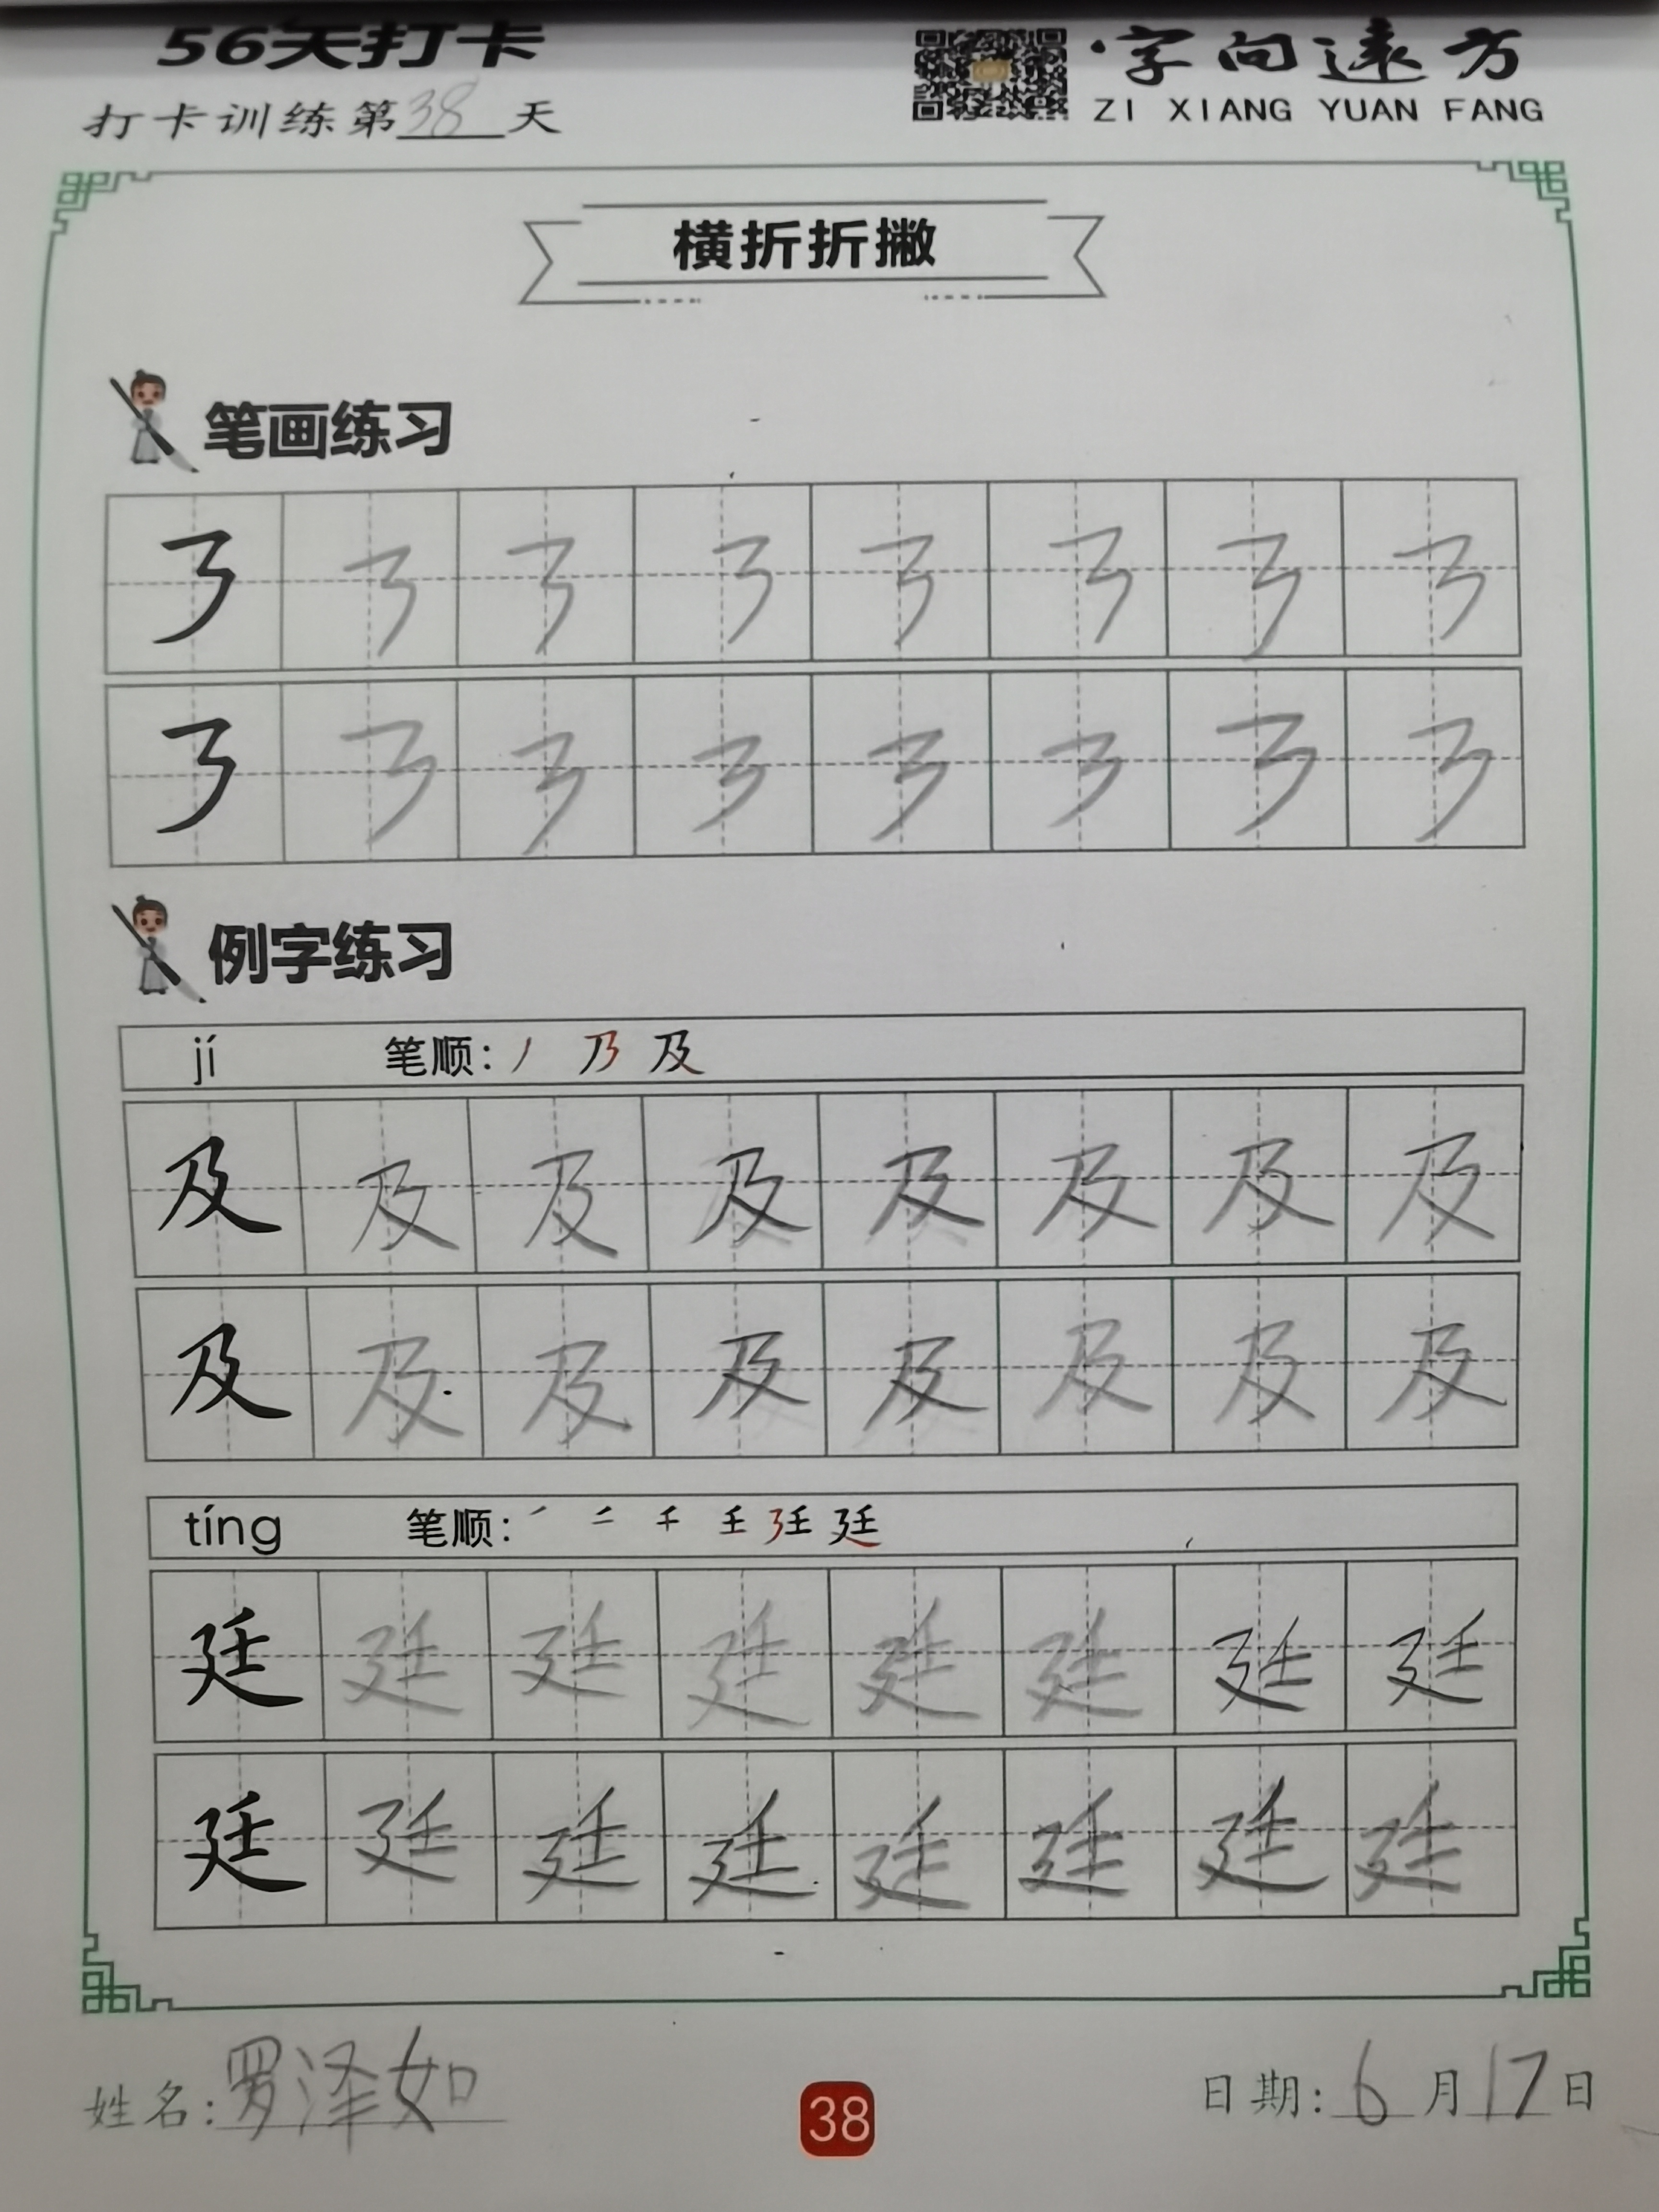 56天打卡
·字向远方
打卡训练第38天
ZI XIANG YUAN FANG
横折折撇
笔画练习
㇋ ㇋ ㇋ ㇋ ㇋ ㇋ ㇋ ㇋
㇋ ㇋ ㇋ ㇋ ㇋ ㇋ ㇋ ㇋
例字练习
jí 笔顺: 丿 乃 及
及 及 及 及 及 及 及 及
及 及 及 及 及 及 及 及
tíng 笔顺: ㇒ 二 千 壬 廷 廷
廷 廷 廷 廷 廷 廷 廷 廷
廷 廷 廷 廷 廷 廷 廷 廷
姓名:罗泽如
38
日期:6月17日